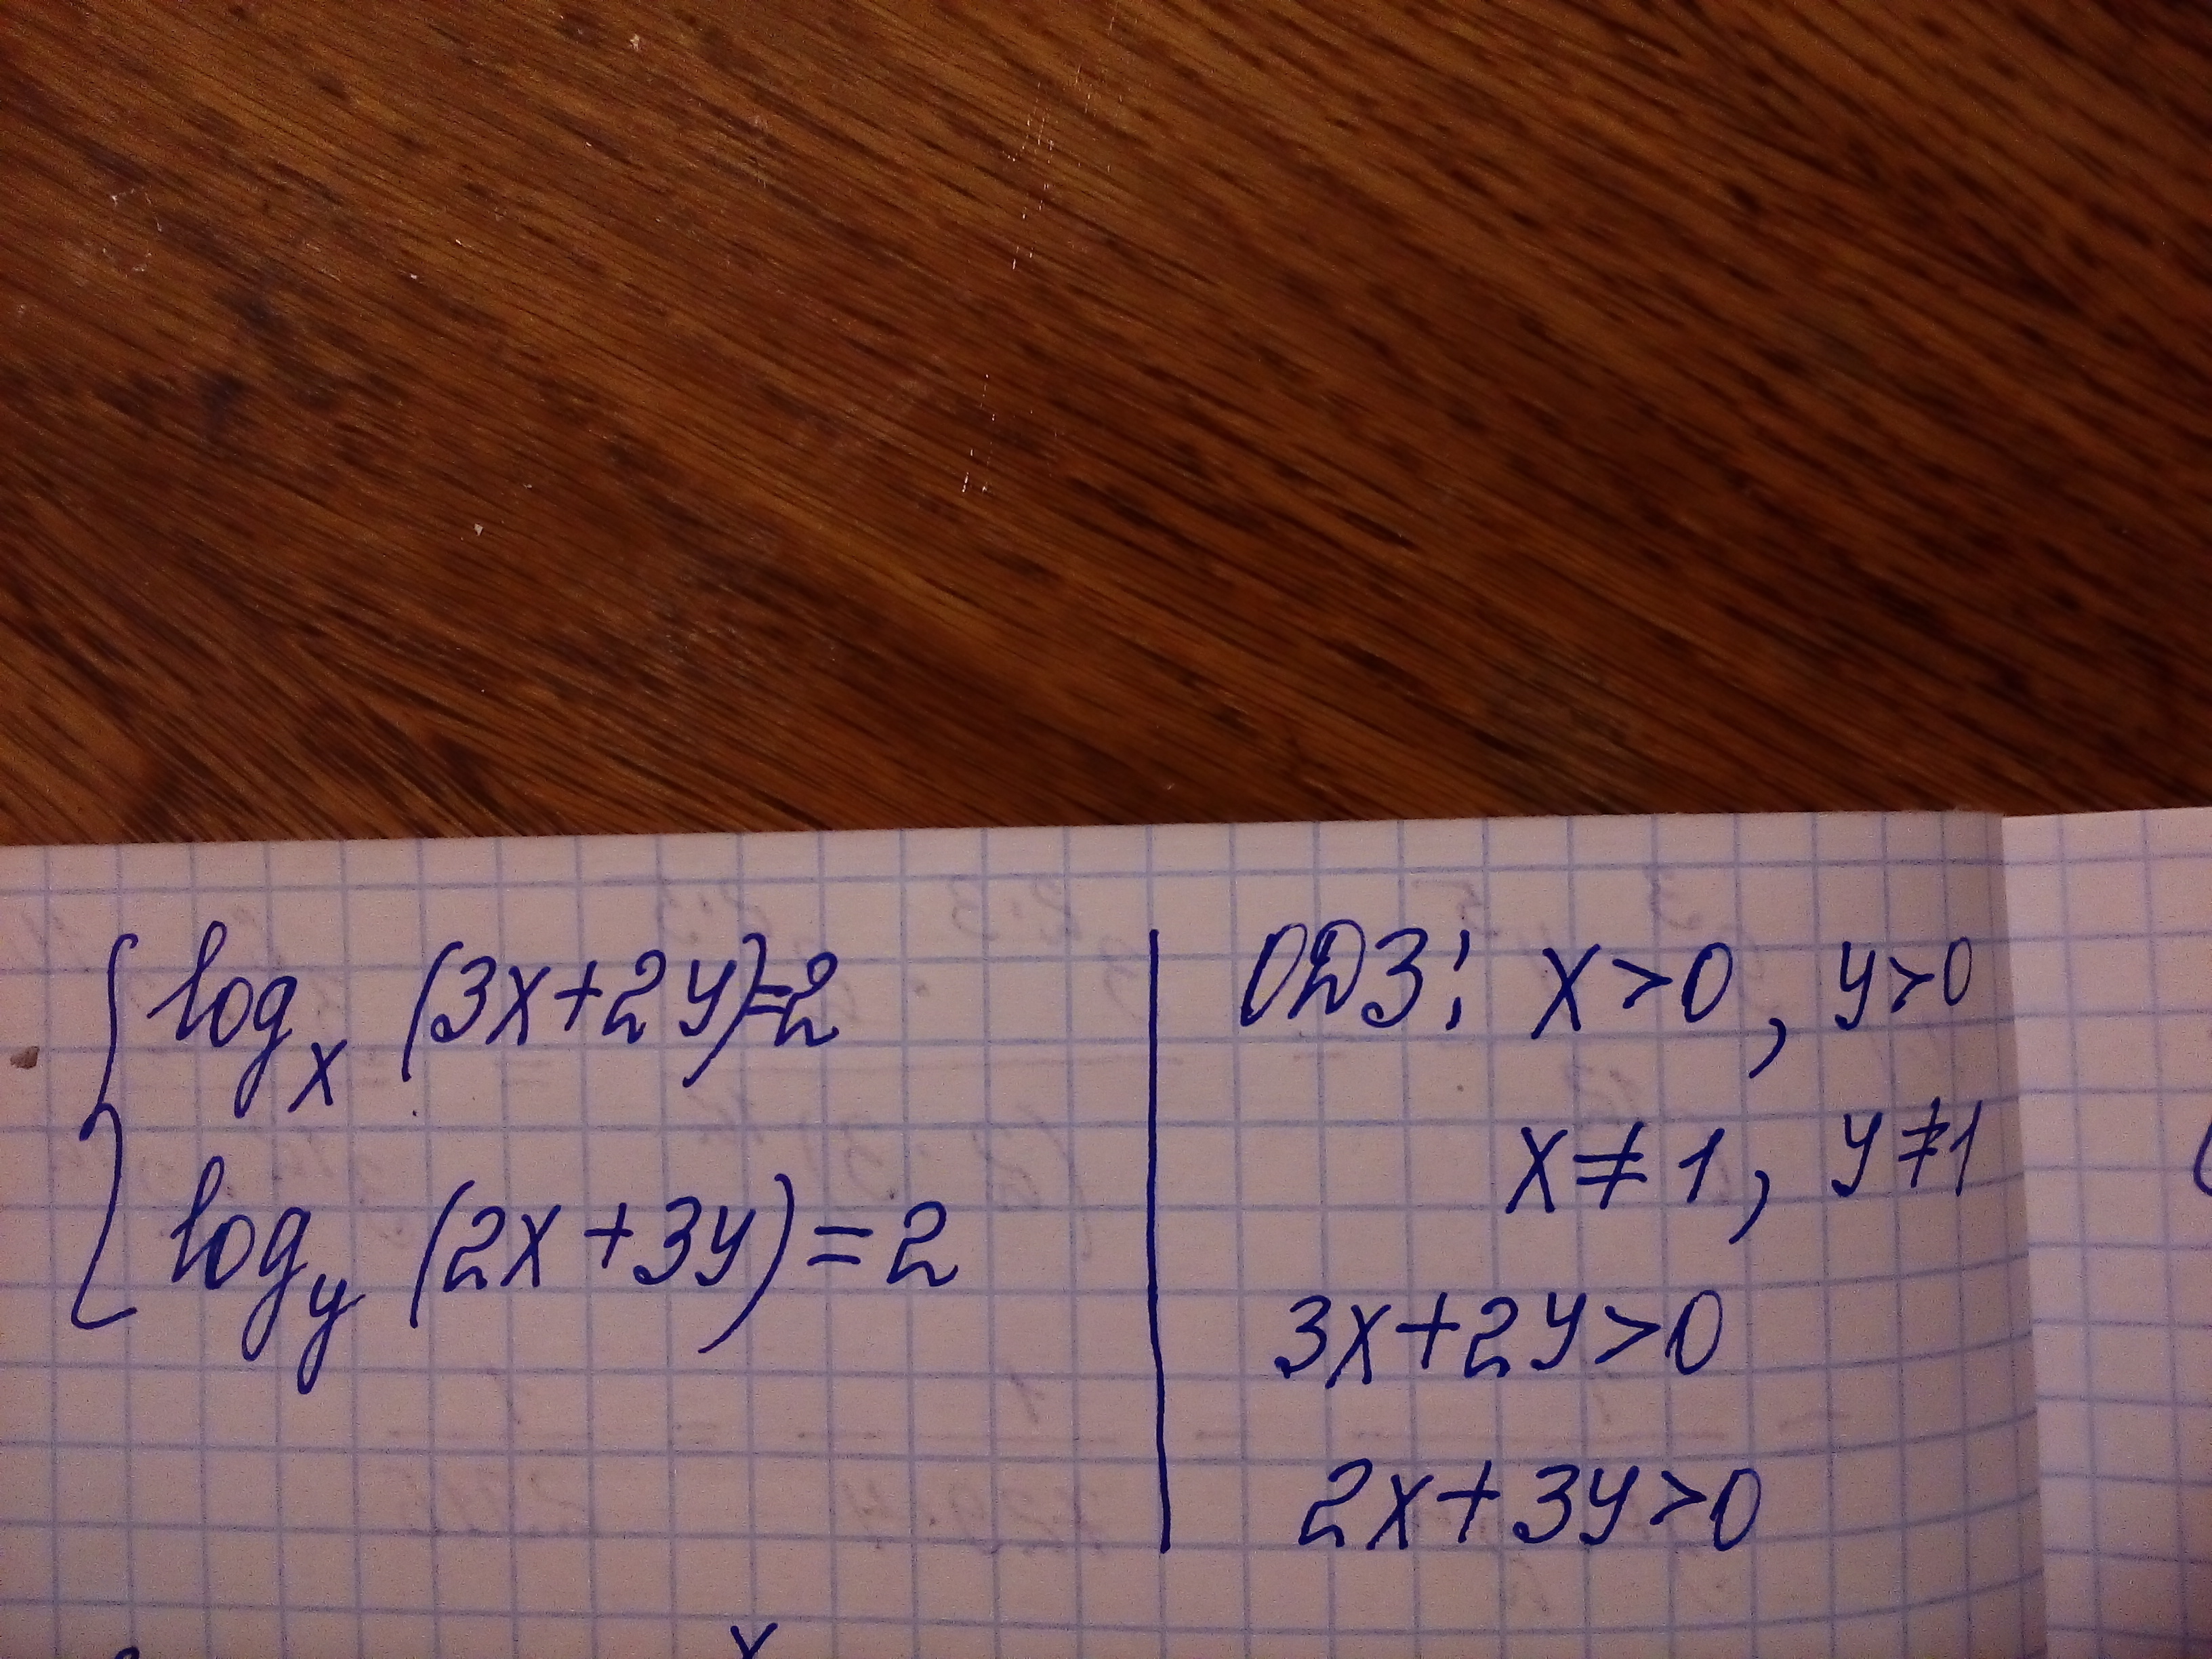 log_x (3x+2y)=2
log_y (2x+3y)=2
ОДЗ: x>0, y>0
x≠1, y≠1
3x+2y>0
2x+3y>0
x